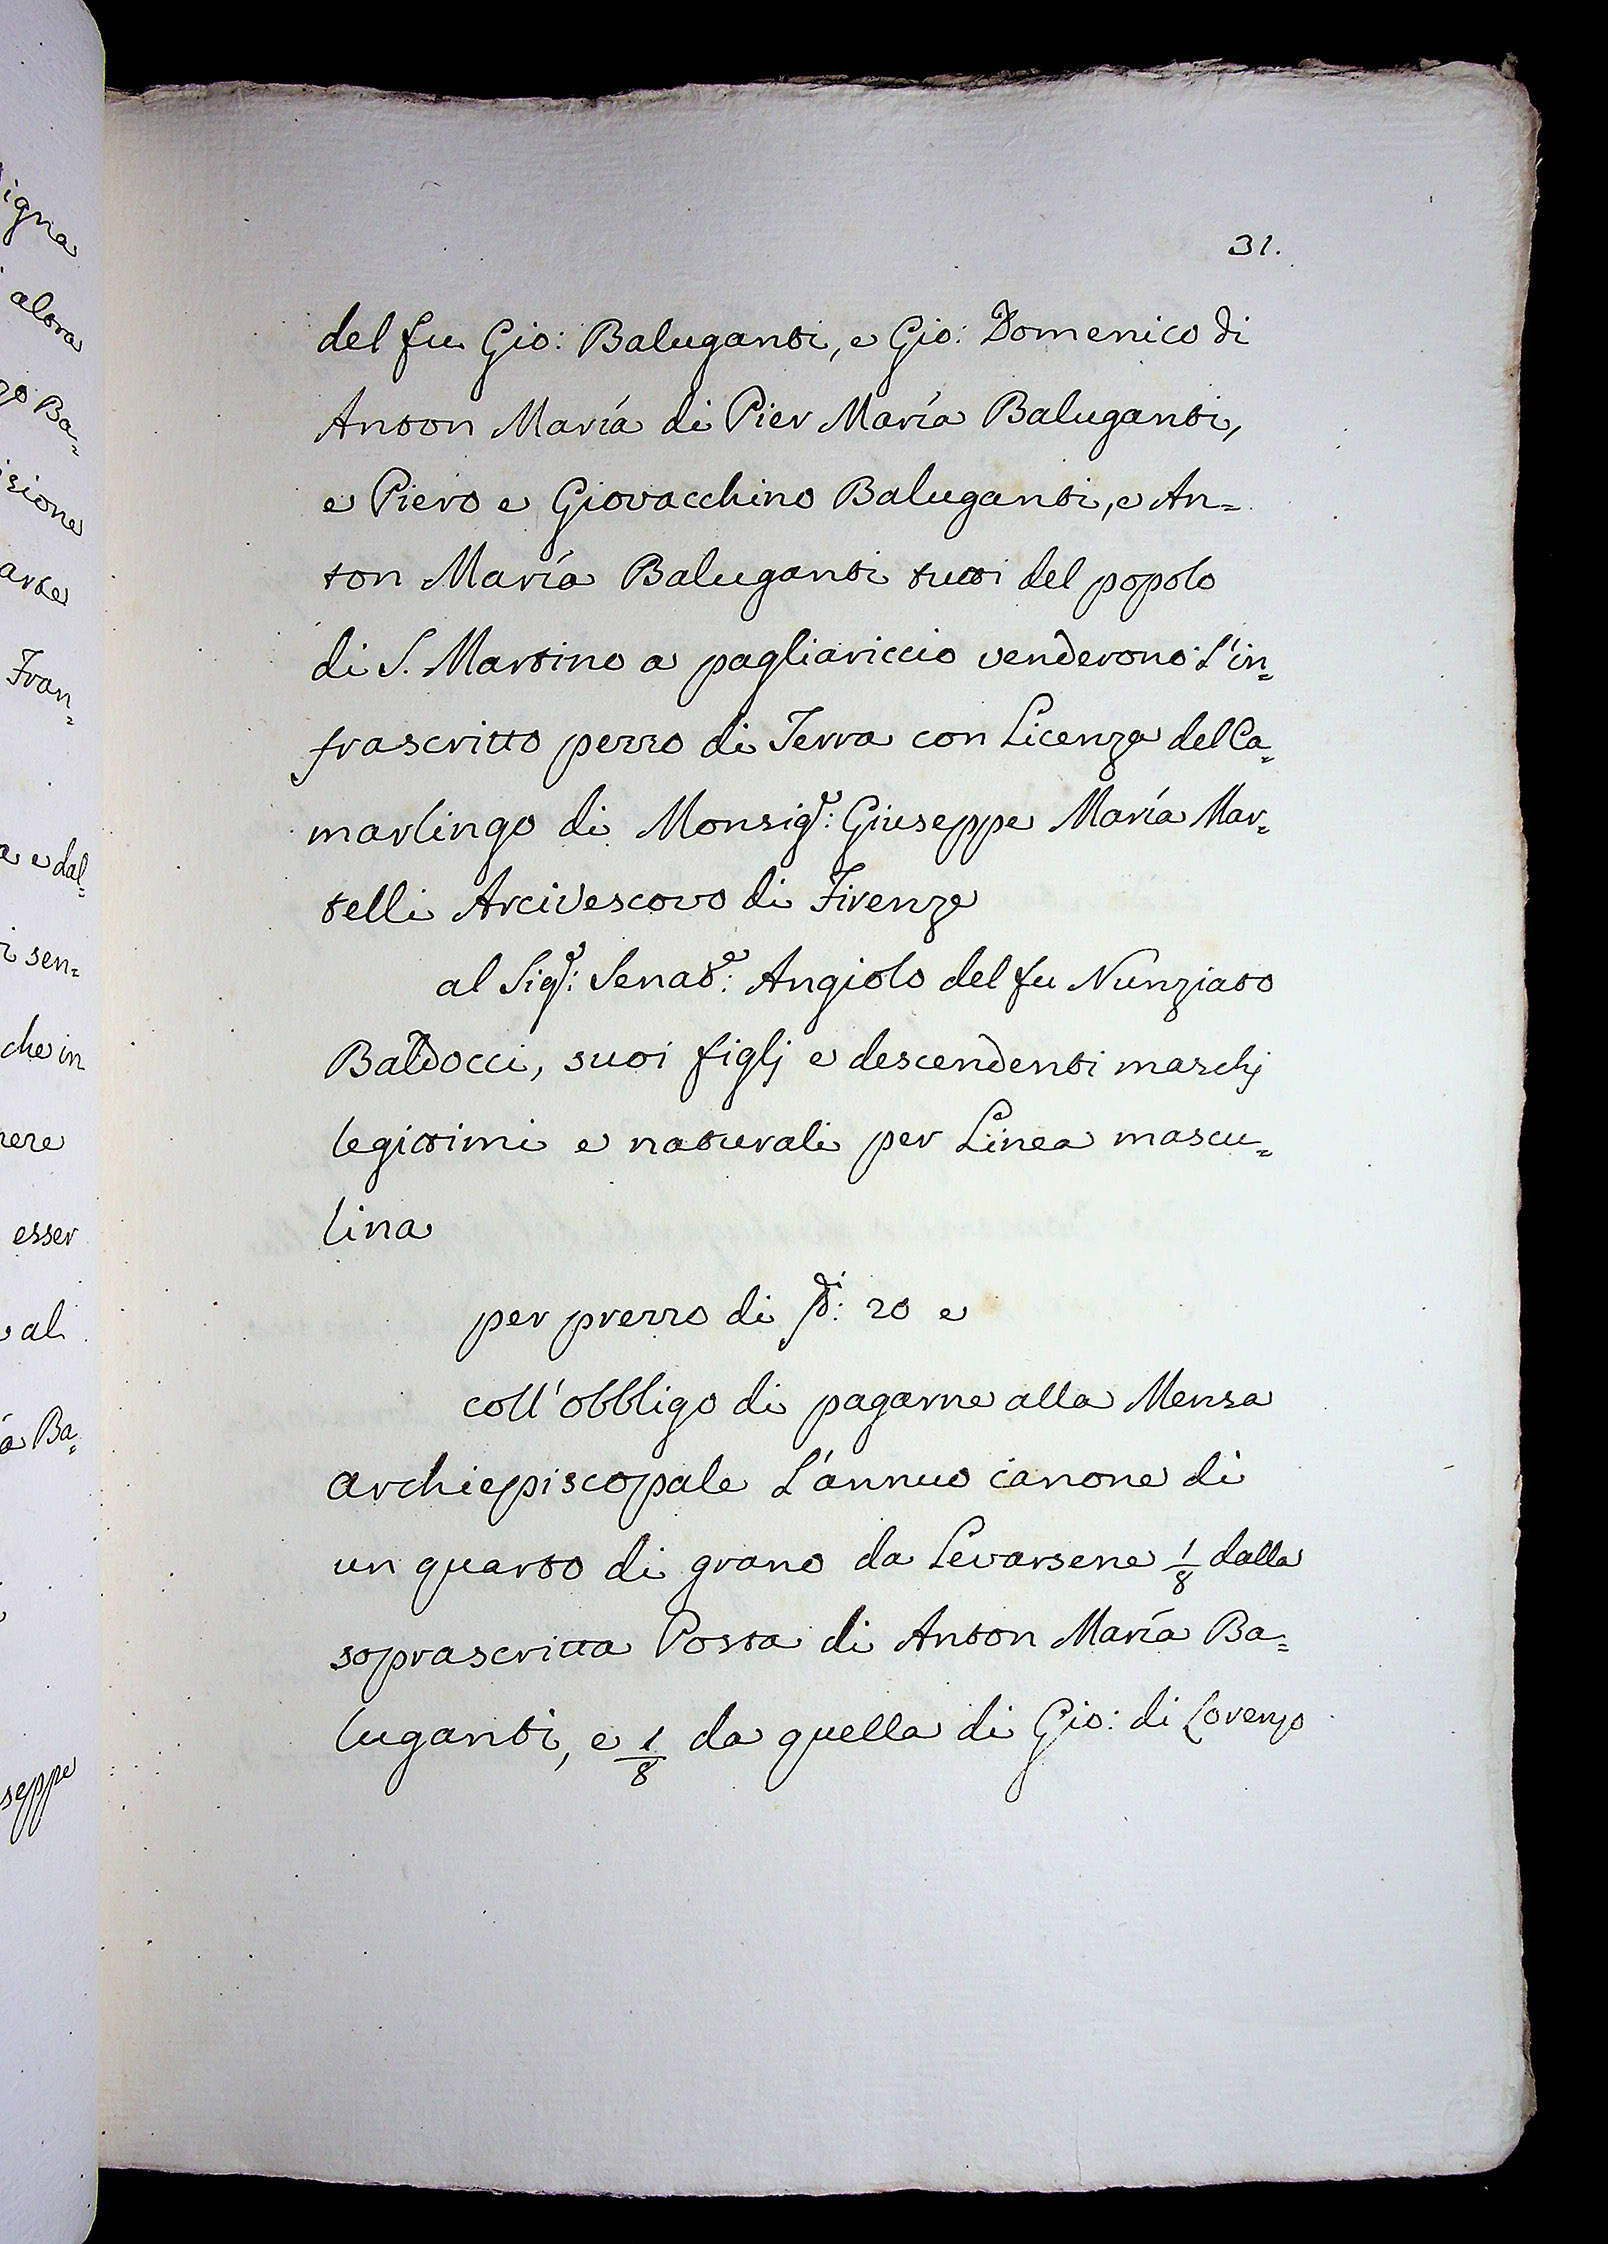 igna
alora
go Ba=
isione
arte
Fran=
a e dal=
i sen=
che in
nere
esser
ali
a Ba=
seppe
31.
del fu Gio: Baluganti, e Gio: Domenico di
Anton María di Pier María Baluganti,
e Piero e Giovacchino Baluganti, e An=
ton María Baluganti tutti del popolo
di S. Martino a pagliariccio venderono l'in=
frascritto pezzo di Terra con Licenza del Ca=
marlingo di Monsig.r: Giuseppe María Mar=
telli Arcivescovo di Firenze
al Sig.r: Senat.e: Angiolo del fu Nunziato
Baldocci, suoi figlj e descendenti maschj
legittimi e naturali per Linea mascu=
lina
per prezzo di 20 e
coll'obbligo di pagarne alla Mensa
archiepiscopale L'annuo canone di
un quarto di grano da Levarsene 1/8 dalla
soprascritta Posta di Anton María Ba=
luganti, e 1/8 da quella di Gio: di Lorenzo